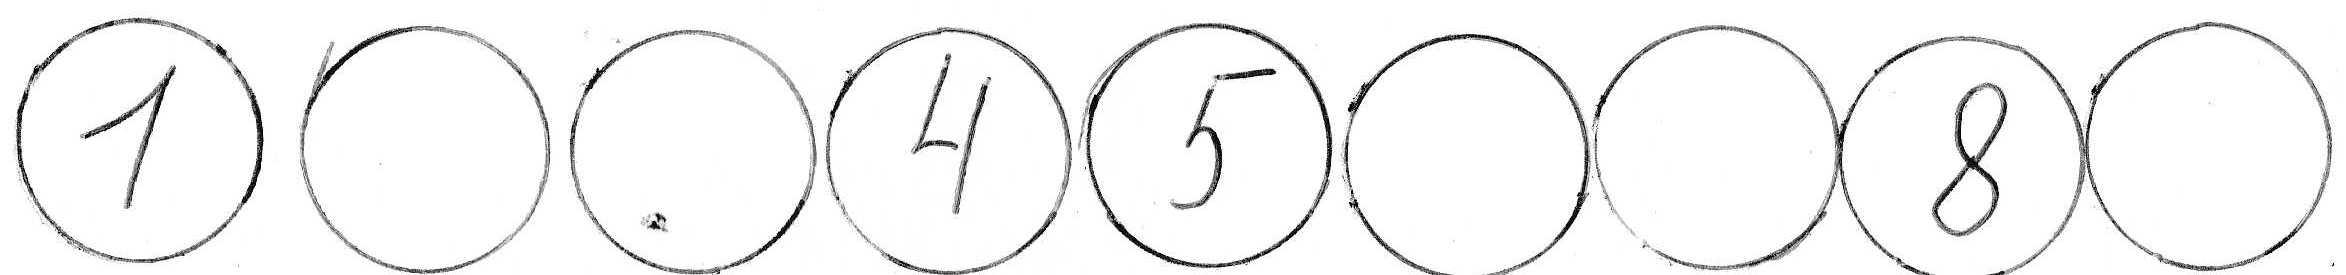 1 4 5 8